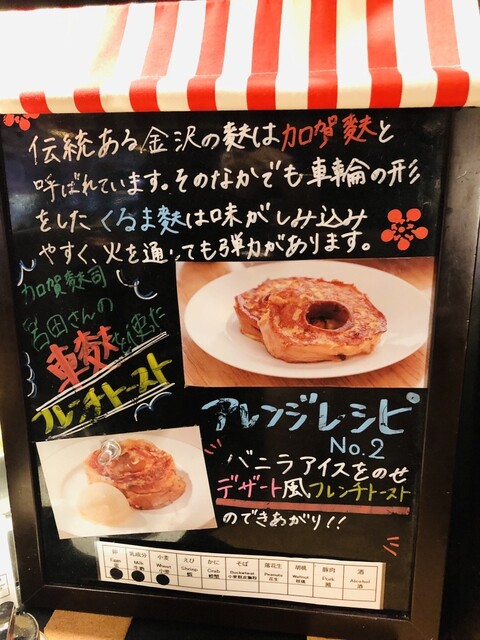 伝統ある金沢の麩は加賀麩と
呼ばれています。そのなかでも車輪の形
をした くるま麩は味がしみ込み
やすく、火を通しても弾力があります。
加賀麩司
宮田さんの
車麩を使った
フレンチトースト
アレンジレシピ
No.2
バニラアイスをのせ
デザート風フレンチトースト
のできあがり!!
卵 乳成分 小麦 えび かに そば 落花生 胡桃 豚肉 酒
Egg Milk Wheat Shrimp Crab Buckwheat Peanuts Walnut Pork Alcohol
小麦 蝦 螃蟹 花生 核桃 猪 酒